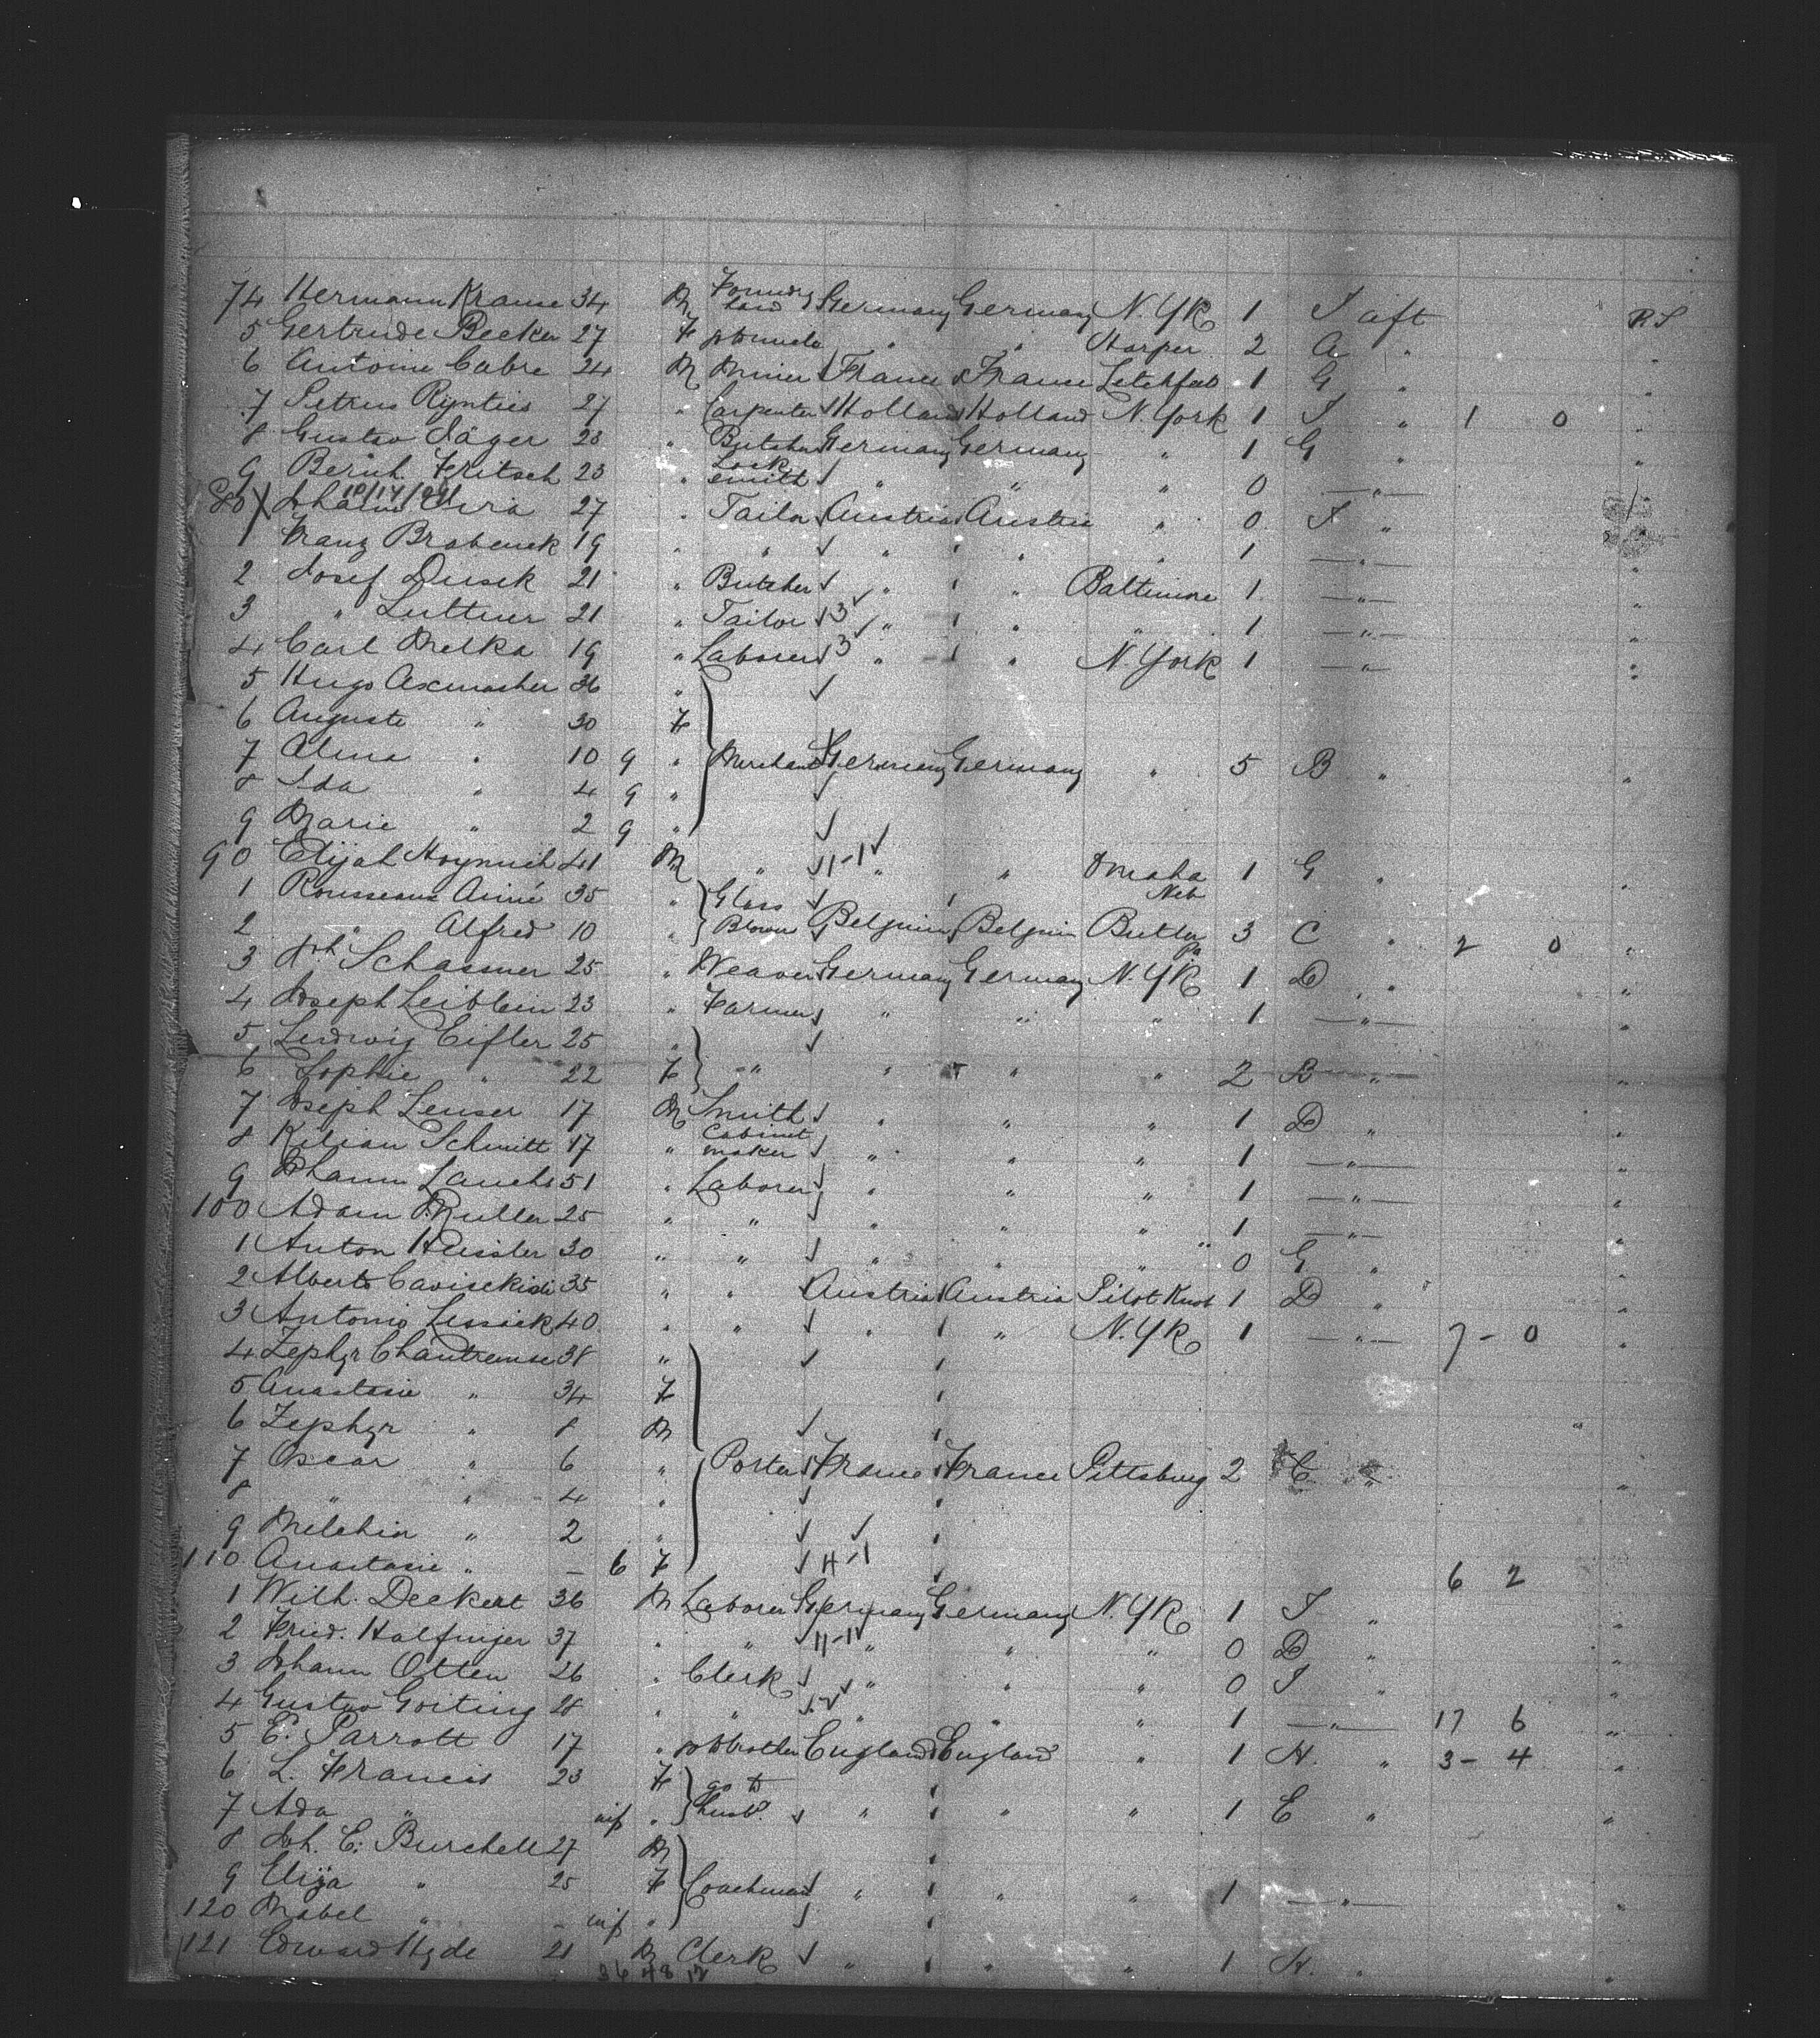 74 Hermann Krause 34 M Germany Germany N.Yk 1 S aft P.S
5 Gertrude Becker 27 F " " Harper 2 A " "
6 Antoine Cabre 24 M Miner France France 1 G " "
7 Petrus Rynties 27 " Carpenter Holland Holland N. York 1 S " 1 0 "
8 Gustav Jäger 28 " Butcher Germany Germany " 1 G " "
9 Bernh. Fritsch 23 " Lock smith " " " 0 — " —
10/14/
80 27 " Tailor Austria Austria " 0 S "
1 Franz Brabenek 19 " " " " " 1 — " — "
2 Josef Dusek 21 " Butcher " " Baltimore 1 — " — "
3 " Luttner 21 " Tailor 3 " " " 1 — " — "
4 Carl Melka 19 " Laborer 3 " " N. York 1 — " — "
5 Hugo Axmacher 36 "
6 Auguste " 30 F
7 Alma " 10 9 " Merchant Germany Germany " 5 B " "
8 Ida " 4 9 "
9 Marie " 2 9 "
90 Elijah 41 M " 11-1 " " Omaha Neb 1 G " "
1 Rousseaux Aimé 35 " Glass
2 " Alfred 10 " Blower Belgium Belgium Butler Pa 3 C " 2 0 "
3 Joh Schassner 25 " Weaver Germany Germany N.Yk 1 D " "
4 Joseph Leiblein 23 " Farmer " " " 1 — " — "
5 Ludwig Eifler 25 "
6 Sophie " 22 F " " " " 2 B " "
7 Joseph Lenser 17 M Smith " " " 1 D " "
8 Kilian Schmitt 17 " Cabinet maker " " " 1 — " — "
9 Johann Lauchs 51 " Laborer " " " 1 — " — "
100 Adam Muller 25 " " " " " 1 — " — "
1 Anton Heissler 30 " " " " " 0 G " "
2 Alberto 35 " " Austria Austria Pilot Knob 1 D " "
3 Antonio Lessick 40 " " " " N.Yk 1 — " — 7 - 0 "
4 Zephyr Chantrenne 38 "
5 Anastasie " 34 F
6 Zephyr " 8 M "
7 Oscar " 6 " Porter France France Pittsburg 2 C " "
8 " " 4 "
9 Melchior " 2 "
110 Anastasie " — 6 F 11-1 6 2
1 Wilh. Deckert 36 M Laborer Germany Germany N.Yk 1 S " "
2 Fried. Halfinger 37 " " 11-1 " " " 0 D " "
3 Johann Otten 26 " Clerk " " " 0 S " "
4 Gustav Goiting 28 " " " " " 1 — " — 17 6 "
5 E. Parrott 17 " England England " 1 H. " 3 - 4 "
6 L. Francis 23 F go to
7 Ada " inf " husb. " " " 1 E " "
8 Joh. E. Burchell 27 M
9 Eliza " 25 F Coachman " " " 1 — " — "
120 Mabel " — inf "
121 Edward Hyde 21 M Clerk " " " 1 H. " "
36 48 12